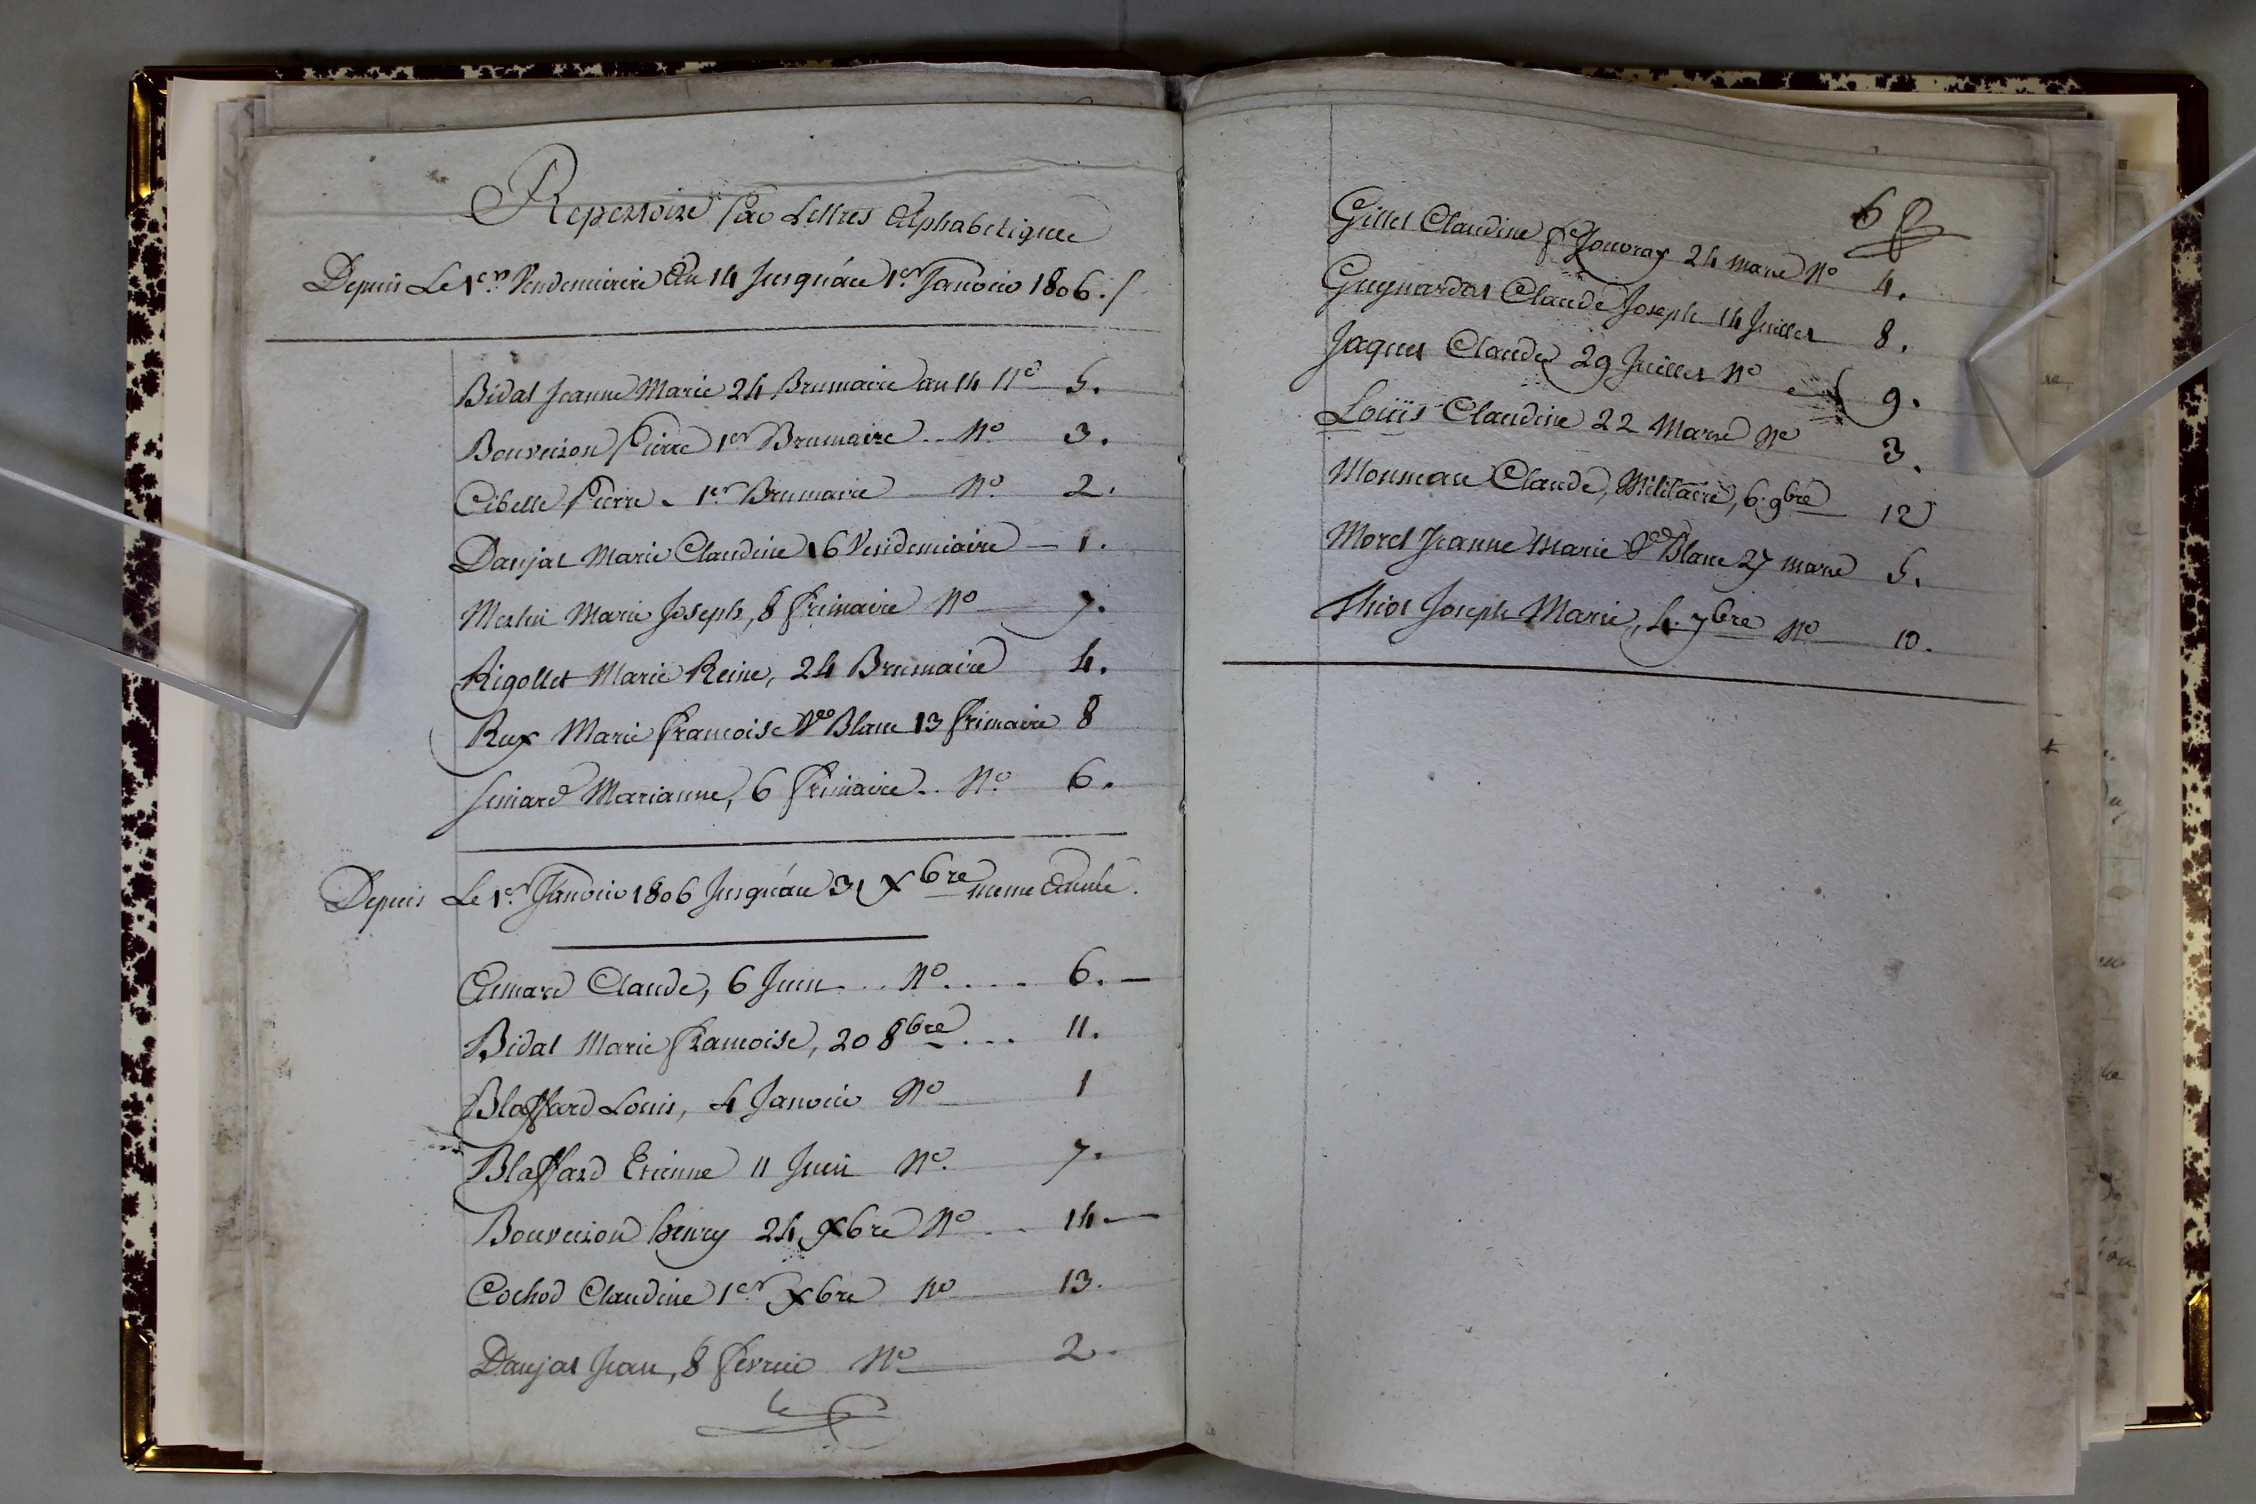 Repertoire Par Lettres Alphabetiques
Depuis Le 1er Vendemiaire An 14 Jusqu'au 1er Janvier 1806.
Bidal Jeanne Marie 24 Brumaire an 14 No 5.
Bouverson Pierre 1er Brumaire .. No 3.
Cibelle Pierre 1er Brumaire No 2.
Danjat Marie Claudine 16 Vendemiaire 1.
Merlin Marie Joseph, 8 frimaire No 7.
Rigollet Marie Reine, 24 Brumaire 4.
Rux Marie francoise Ve Blanc 13 frimaire 8
Simard Marianne, 6 frimaire .. No 6.
Depuis Le 1er Janvier 1806 Jusqu'au 31 Xbre meme Année.
Aimard Claude, 6 Juin ... No .... 6.
Bidal Marie francoise, 20 8bre ... 11.
Blaffard Louis, 4 Janvier No 1
Blaffard Etienne 11 Juin No. 7.
Bouverson henry 24 Xbre No 14.
Cochod Claudine 1er Xbre No 13.
Danjat Jean, 8 fevrier No 2.
6
Gillet Claudine fe Jouvray 24 mars No 4.
Guynardat Claude Joseph 14 Juillet 8.
Jaquet Claude 29 Juillet No 9.
Loüis Claudine 22 Mars No 3.
Claude, Militaire, 6. 9bre 12
Morel Jeanne Marie Ve Blanc 27 mars 5.
Thiot Joseph Marie, 4. 7bre No 10.